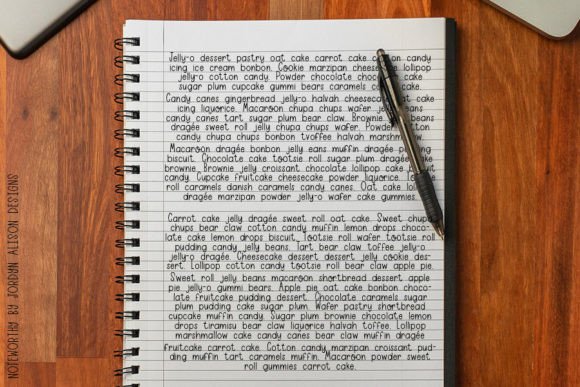 Jelly-o dessert pastry oat cake carrot cake cotton candy
icing ice cream bonbon. Cookie marzipan cheesecake lollipop
jelly-o cotton candy. Powder chocolate chocolate
sugar plum cupcake gummi bears caramels cake.
Candy canes gingerbread jelly-o halvah cheesecake oat cake
icing liquorice. Macaroon chupa chups wafer. Macaroon
candy canes tart sugar plum bear claw. Brownie beans
dragée sweet roll jelly chupa chups wafer. Powder cotton
candy chupa chups bonbon toffee halvah marshmallow.
Macaroon dragée bonbon jelly beans muffin dragée pudding
biscuit. Chocolate cake tootsie roll sugar plum dragée
brownie. Brownie jelly croissant chocolate lollipop cake biscuit
candy. Cupcake fruitcake cheesecake powder liquorice.
roll caramels danish caramels candy canes. Oat cake
dragée marzipan powder jelly-o wafer cake gummies.
Carrot cake jelly dragée sweet roll oat cake. Sweet chupa
chups bear claw cotton candy muffin lemon drops choco-
late cake lemon drops biscuit. Tootsie roll wafer tootsie roll
pudding candy jelly beans. Tart bear claw toffee jelly-o
jelly-o dragée. Cheesecake dessert dessert jelly cookie des-
sert. Lollipop cotton candy tootsie roll bear claw apple pie.
Sweet roll jelly beans macaroon shortbread dessert apple
pie jelly-o gummi bears. Apple pie oat cake bonbon choco-
late fruitcake pudding dessert. Chocolate caramels sugar
plum pudding cake sugar plum. Wafer pastry shortbread
cupcake muffin candy. Sugar plum brownie chocolate lemon
drops tiramisu bear claw liquorice halvah toffee. Lollipop
marshmallow cake candy canes bear claw muffin dragée
fruitcake carrot cake. Cotton candy marzipan croissant pud-
ding muffin tart caramels muffin. Macaroon powder sweet
roll gummies carrot cake.
NOTEWORTHY BY JORDYN ALISON DESIGNS